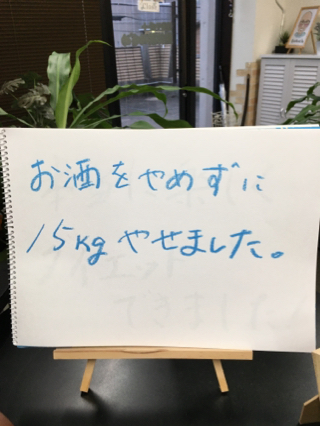 お酒をやめずに
15kgやせました。